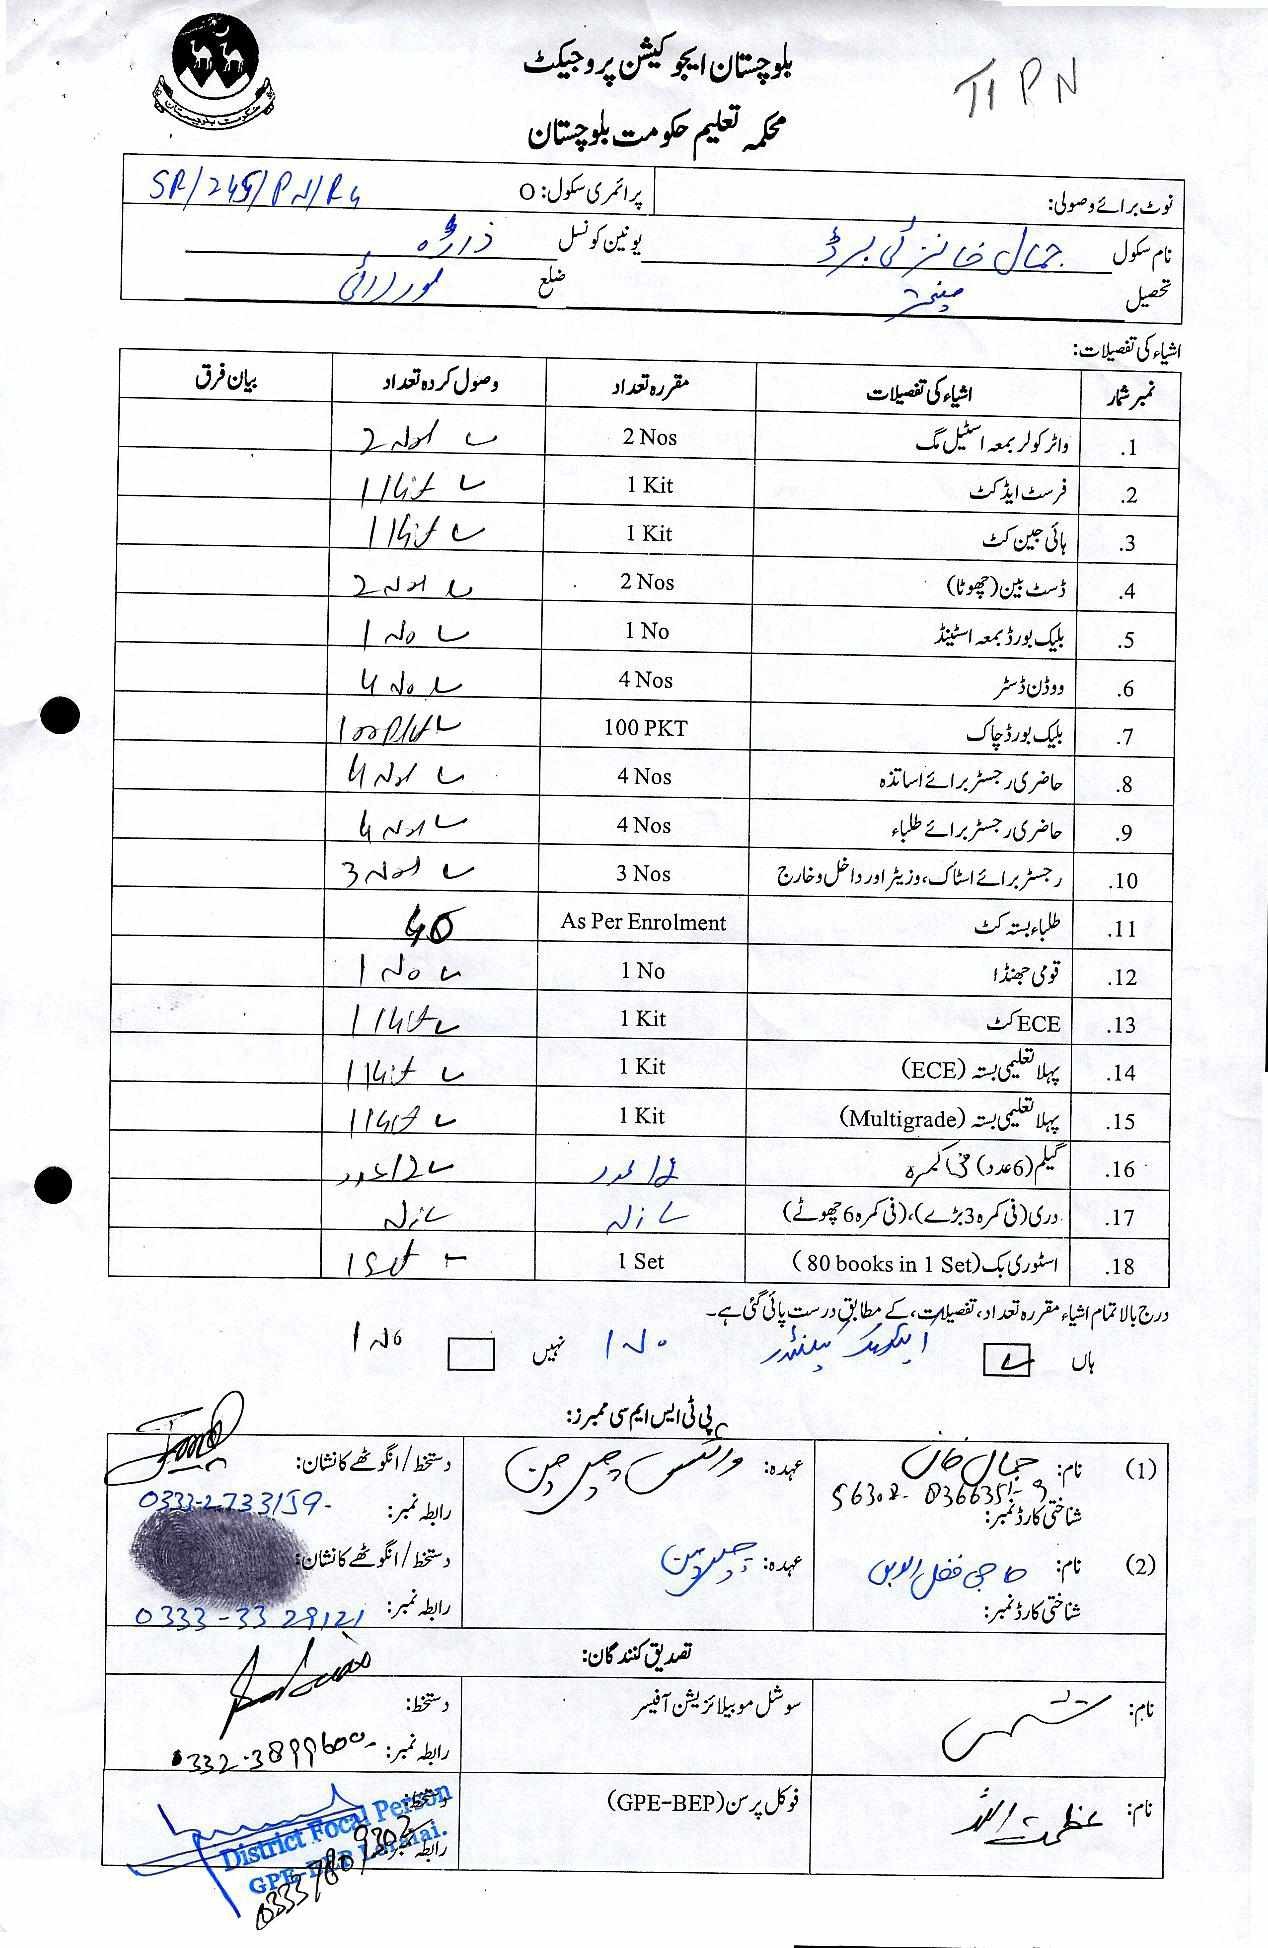 T1 PN
بلوچستان ایجوکیشن پروجیکٹ
محکمہ تعلیم حکومت بلوچستان
نوٹ برائے وصولی: پرائمری سکول: O SR/245/PN/R4
نام سکول جمال خانزئی برڈ یونین کونسل
تحصیل ضلع لورالائی
اشیاء کی تفصیلات:
نمبر شمار اشیاء کی تفصیلات مقررہ تعداد وصول کردہ تعداد بیان فرق
1. واٹر کولر بمعہ اسٹیل مگ 2 Nos 2 Nos
2. فرسٹ ایڈ کٹ 1 Kit 1 Kit
3. ہائی جین کٹ 1 Kit 1 Kit
4. ڈسٹ بین (چھوٹا) 2 Nos 2 Nos
5. بلیک بورڈ بمعہ اسٹینڈ 1 No 1 No
6. ووڈن ڈسٹر 4 Nos 4 No
7. بلیک بورڈ چاک 100 PKT 100 Pkt
8. حاضری رجسٹر برائے اساتذہ 4 Nos 4 Nos
9. حاضری رجسٹر برائے طلباء 4 Nos 4 Nos
10. رجسٹر برائے اسٹاک، وزیٹر اور داخل و خارج 3 Nos 3 Nos
11. طلباء بستہ کٹ As Per Enrolment 40
12. قومی جھنڈا 1 No 1 No
13. ECE کٹ 1 Kit 1 Kit
14. پہلا تعلیمی بستہ (ECE) 1 Kit 1 Kit
15. پہلا تعلیمی بستہ (Multigrade) 1 Kit 1 Kit
16. گیلم (6 عدد) فی کمرہ 12 عدد 12 عدد
17. دری (فی کمرہ 3 بڑے)، (فی کمرہ 6 چھوٹے)
18. اسٹوری بک (80 books in 1 Set) 1 Set 1 Set
درج بالا تمام اشیاء مقررہ تعداد، تفصیلات، کے مطابق درست پائی گئی ہے۔
ہاں کیلنڈر 1 No نہیں 1 No
پی ٹی ایس ایم سی ممبرز:
(1) نام: جمال خان عہدہ: وائس چیئرمین دستخط / انگوٹھے کا نشان:
شناختی کارڈ نمبر: 56302-0366351-9 رابطہ نمبر: 0333-2733159
(2) نام: حاجی فضل الدین عہدہ: چیئرمین دستخط / انگوٹھے کا نشان:
شناختی کارڈ نمبر: رابطہ نمبر: 0333-3329121
تصدیق کنندگان:
نام: شمس سوشل موبیلائزیشن آفیسر دستخط:
رابطہ نمبر: 0332-3899600
نام: عظمت اللہ فوکل پرسن (GPE-BEP) دستخط:
رابطہ نمبر: 0333 7809302
District Focal Person
GPE-BEP Loralai.